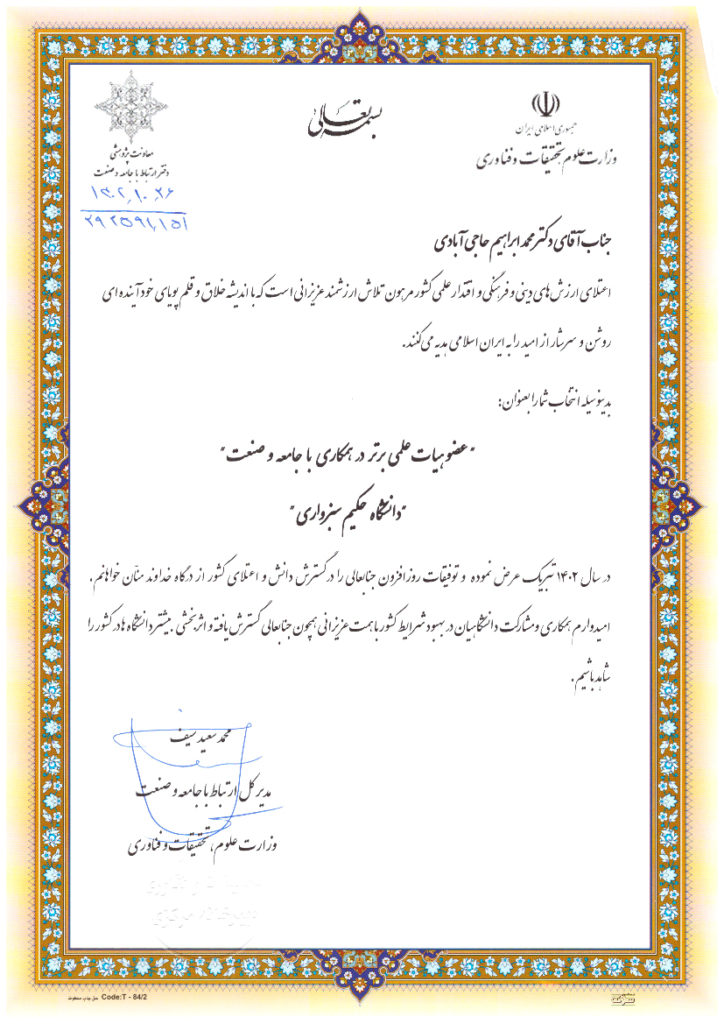 بسمه تعالی
جمهوری اسلامی ایران
وزارت علوم تحقیقات و فناوری
معاونت پژوهشی
دفتر ارتباط با جامعه و صنعت
۱۴۰۲,۱۰,۲۶
جناب آقای دکتر محمد ابراهیم حاجی آبادی
اعتلای ارزش های دینی و فرهنگی و اقتدار علمی کشور مرهون تلاش ارزشمند عزیزانی است که با اندیشه خلاق و قلم پویای خود آینده ای
روشن و سرشار از امید را به ایران اسلامی هدیه می کنند.
بدینوسیله انتخاب شما را بعنوان:
"عضو هیات علمی برتر در همکاری با جامعه و صنعت"
"دانشگاه حکیم سبزواری"
در سال ۱۴۰۲ تبریک عرض نموده و توفیقات روزافزون جنابعالی را در گسترش دانش و اعتلای کشور از درگاه خداوند منّان خواهانم.
امیدوارم همکاری و مشارکت دانشگاهیان در بهبود شرایط کشور با همت عزیزانی همچون جنابعالی گسترش یافته و اثربخشی بیشتر دانشگاه ها در کشور را
شاهد باشیم.
محمد سعید سیف
مدیر کل ارتباط با جامعه و صنعت
وزارت علوم، تحقیقات و فناوری
Code:T - 84/2